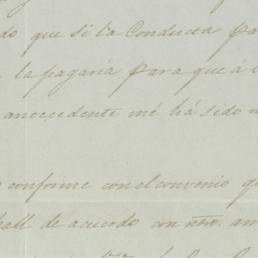 do que si la Conducta pa
la pagaria para que á
antecedente mé há sido
conforme con el convenio q
hall de acuerdo con ntro. am